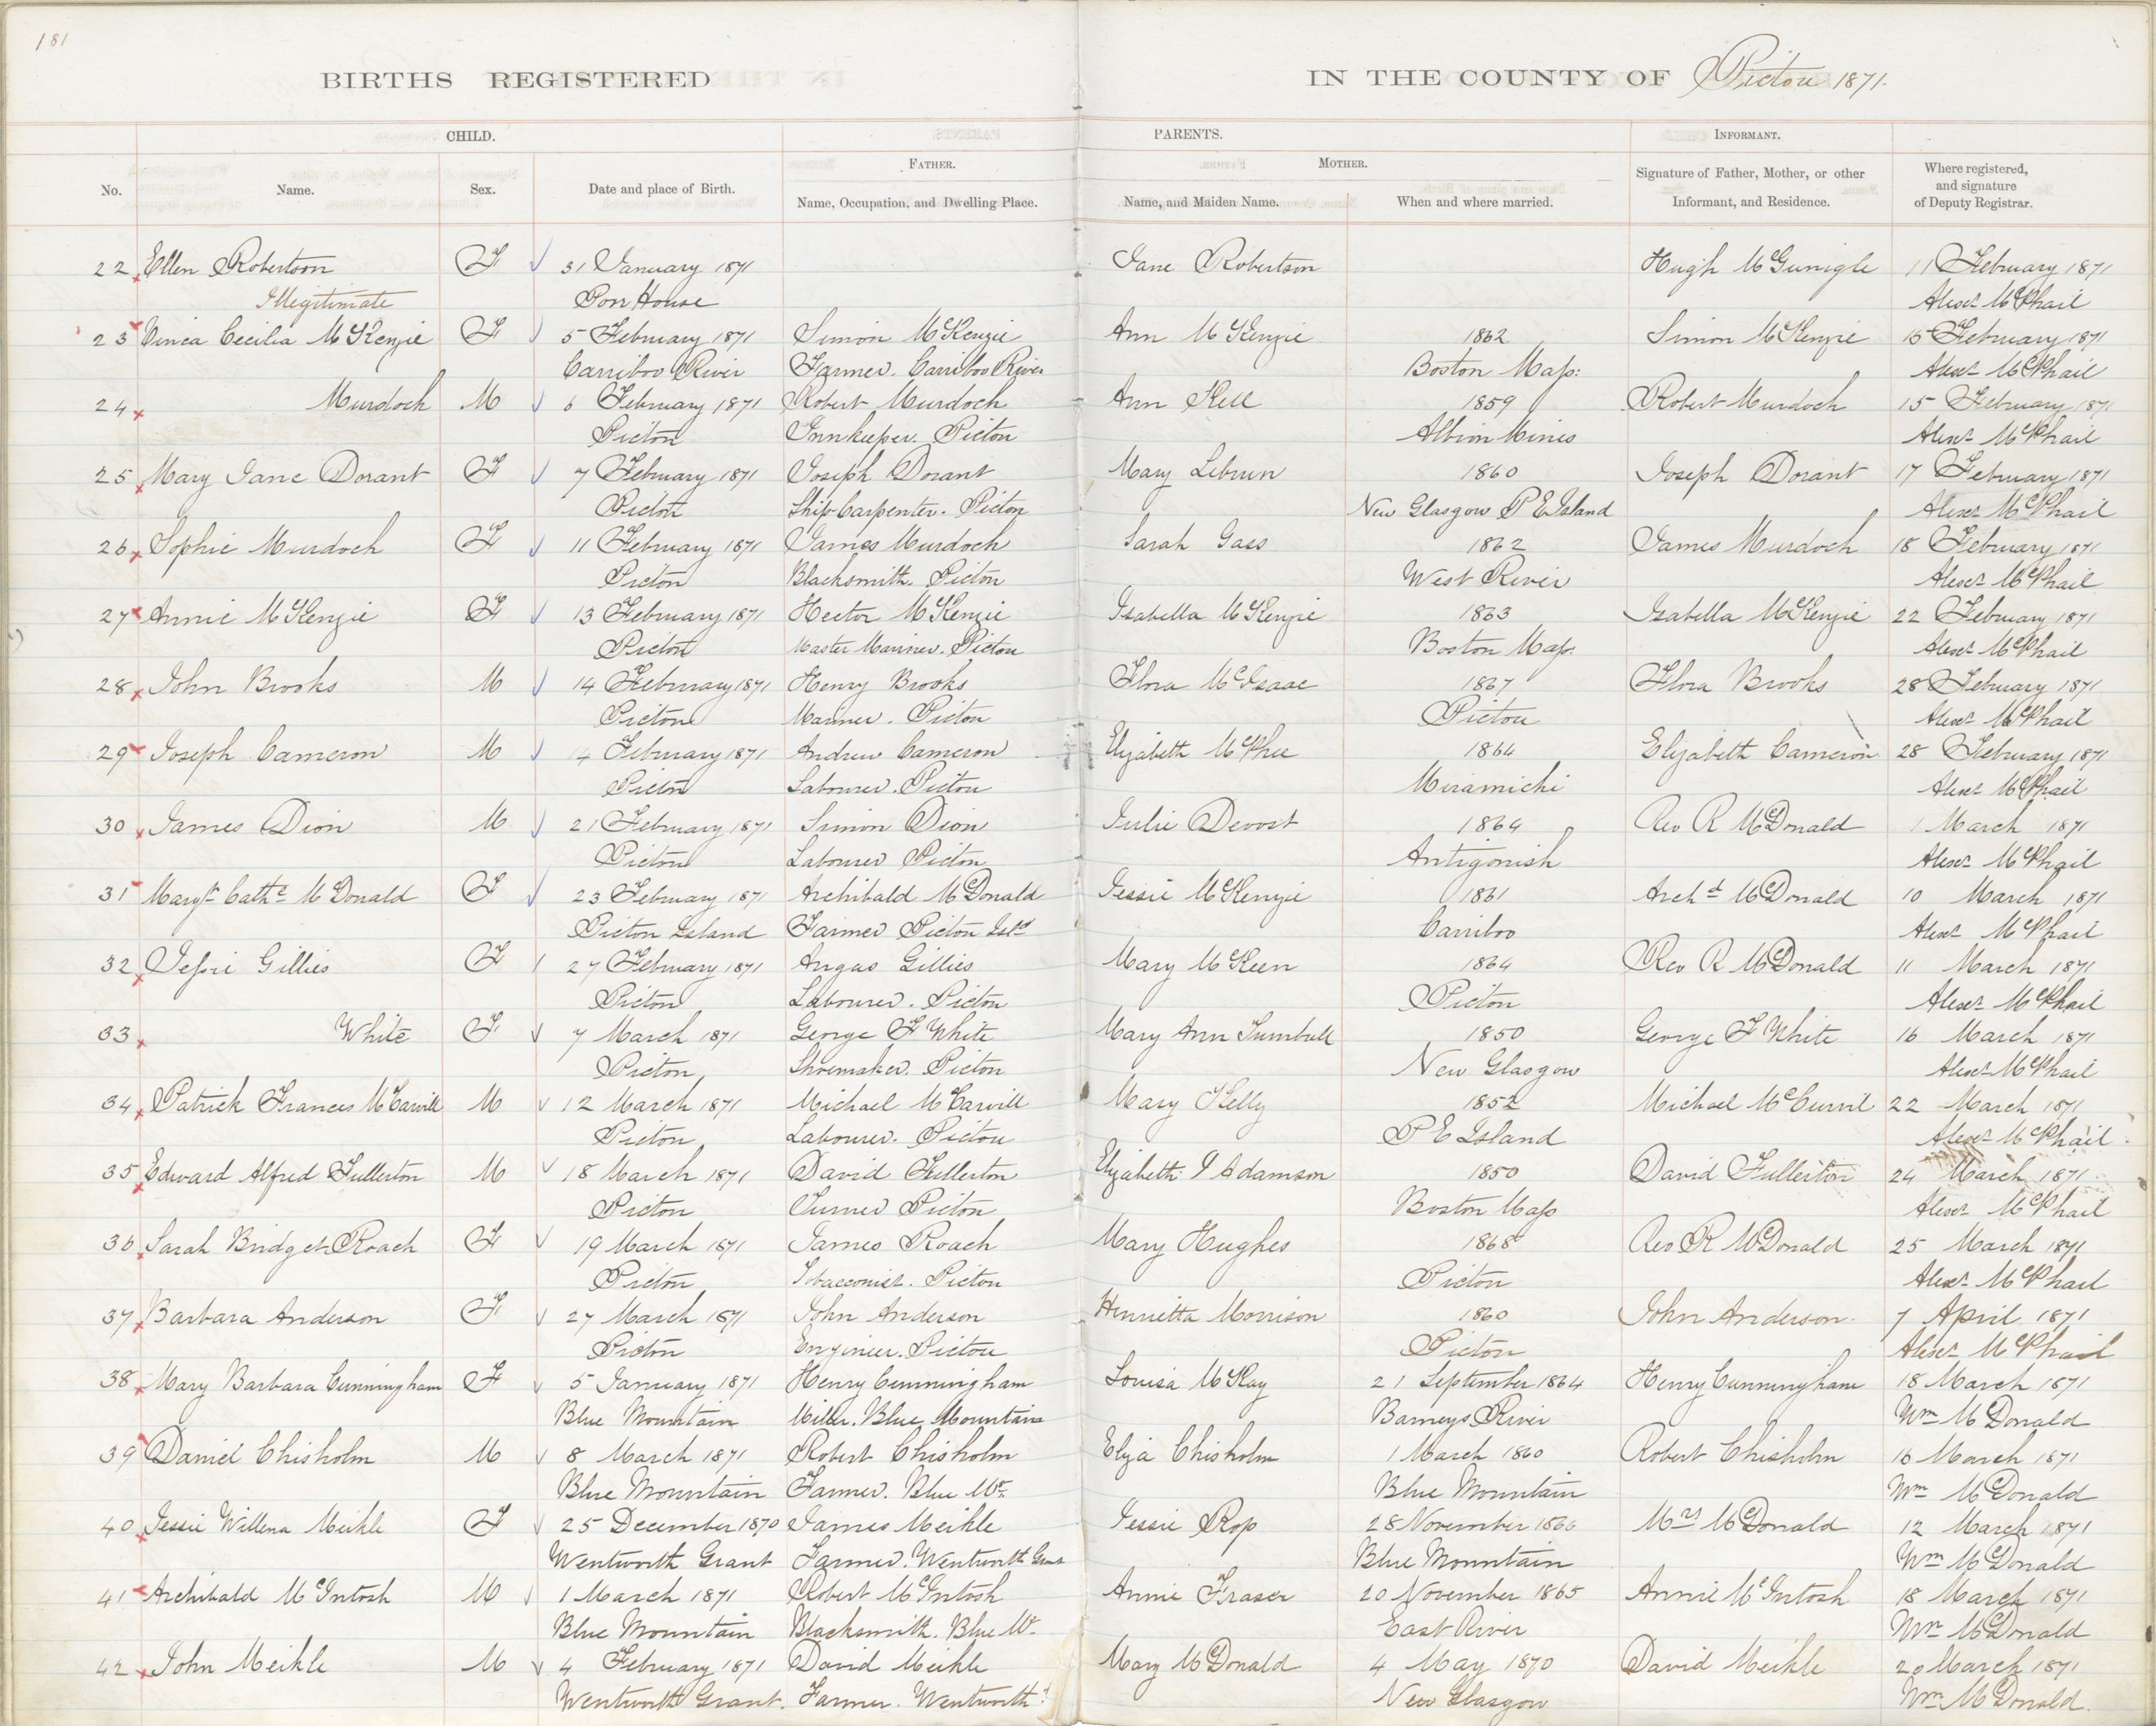 181
BIRTHS REGISTERED IN THE COUNTY OF Pictou 1871.
CHILD. PARENTS. INFORMANT.
No. Name. Sex. Date and place of Birth. FATHER. Name, Occupation, and Dwelling Place. MOTHER. Name, and Maiden Name. When and where married. Signature of Father, Mother, or other Informant, and Residence. Where registered, and signature of Deputy Registrar.
22 Ellen Robertson F 31 January 1871 Jane Robertson Hugh McGunigle 11 February 1871
Illegitimate Poor House Alexr McPhail
23 Cecilia McKenzie F 5 February 1871 Simon McKenzie Ann McKenzie 1862 Simon McKenzie 15 February 1871
Carriboo River Farmer. Carriboo River Boston Mass: Alexr McPhail
24 Murdoch M 6 February 1871 Robert Murdoch Ann Kell 1859 Robert Murdoch 15 February 1871
Pictou Innkeeper. Pictou Albion Mines Alexr McPhail
25 Mary Jane Dorant F 7 February 1871 Joseph Dorant Mary Lebrun 1860 Joseph Dorant 17 February 1871
Pictou Ship Carpenter. Pictou New Glasgow P E Island Alexr McPhail
26 Sophie Murdoch F 11 February 1871 James Murdoch Sarah Gass 1862 James Murdoch 18 February 1871
Pictou Blacksmith. Pictou West River Alexr McPhail
27 Annie McKenzie F 13 February 1871 Hector McKenzie Isabella McKenzie 1863 Isabella McKenzie 22 February 1871
Pictou Master Mariner. Pictou Boston Mass. Alexr McPhail
28 John Brooks M 14 February 1871 Henry Brooks Flora McIsaac 1867 Flora Brooks 28 February 1871
Pictou Mariner. Pictou Pictou Alexr McPhail
29 Joseph Cameron M 14 February 1871 Andrew Cameron Elizabeth McPhee 1864 Elizabeth Cameron 28 February 1871
Pictou Labourer. Pictou Miramichi Alexr McPhail
30 James Dion M 21 February 1871 Simon Dion Julie Devost 1864 Rev R McDonald 1 March 1871
Pictou Labourer Pictou Antigonish Alexr McPhail
31 Margt Cathe McDonald F 23 February 1871 Archibald McDonald Jessie McKenzie 1861 Archd McDonald 10 March 1871
Pictou Island Farmer Pictou Isld Carriboo Alexr McPhail
32 Jessie Gillies F 27 February 1871 Angus Gillies Mary McKeen 1864 Rev R McDonald 11 March 1871
Pictou Labourer. Pictou Pictou Alexr McPhail
33 White F 7 March 1871 George F White Mary Ann Turnbull 1850 George F White 16 March 1871
Pictou Shoemaker. Pictou New Glasgow Alexr McPhail
34 Patrick Frances McCarvill M 12 March 1871 Michael McCarvill Mary Kelly 1852 Michael McCurvil 22 March 1871
Pictou Labourer. Pictou P E Island Alexr McPhail
35 Edward Alfred Fullerton M 18 March 1871 David Fullerton Elizabeth J Adamson 1850 David Fullerton 24 March 1871
Pictou Turner Pictou Boston Mass Alexr McPhail
36 Sarah Bridget Roach F 19 March 1871 James Roach Mary Hughes 1868 Rev R McDonald 25 March 1871
Pictou Tobacconist. Pictou Pictou Alexr McPhail
37 Barbara Anderson F 27 March 1871 John Anderson Henrietta Morrison 1860 John Anderson. 7 April 1871
Pictou Engineer. Pictou Pictou Alexr McPhail
38 Mary Barbara Cunningham F 5 January 1871 Henry Cunningham Louisa McKay 21 September 1864 Henry Cunningham 18 March 1871
Blue Mountain Miller. Blue Mountain Barneys River Wm McDonald
39 Daniel Chisholm M 8 March 1871 Robert Chisholm Eliza Chisholm 1 March 1860 Robert Chisholm 16 March 1871
Blue Mountain Farmer. Blue Mt. Blue Mountain Wm McDonald
40 Jessie Willena Meikle F 25 December 1870 James Meikle Jessie Ross 28 November 1866 Mrs McDonald 12 March 1871
Wentworth Grant Farmer. Wentworth Grant Blue Mountain Wm McDonald
41 Archibald McIntosh M 1 March 1871 Robert McIntosh Annie Fraser 20 November 1865 Annie McIntosh 18 March 1871
Blue Mountain Blacksmith. Blue Mt. East River Wm McDonald
42 John Meikle M 4 February 1871 David Meikle Mary McDonald 4 May 1870 David Meikle 20 March 1871
Wentworth Grant. Farmer. Wentworth New Glasgow Wm McDonald.